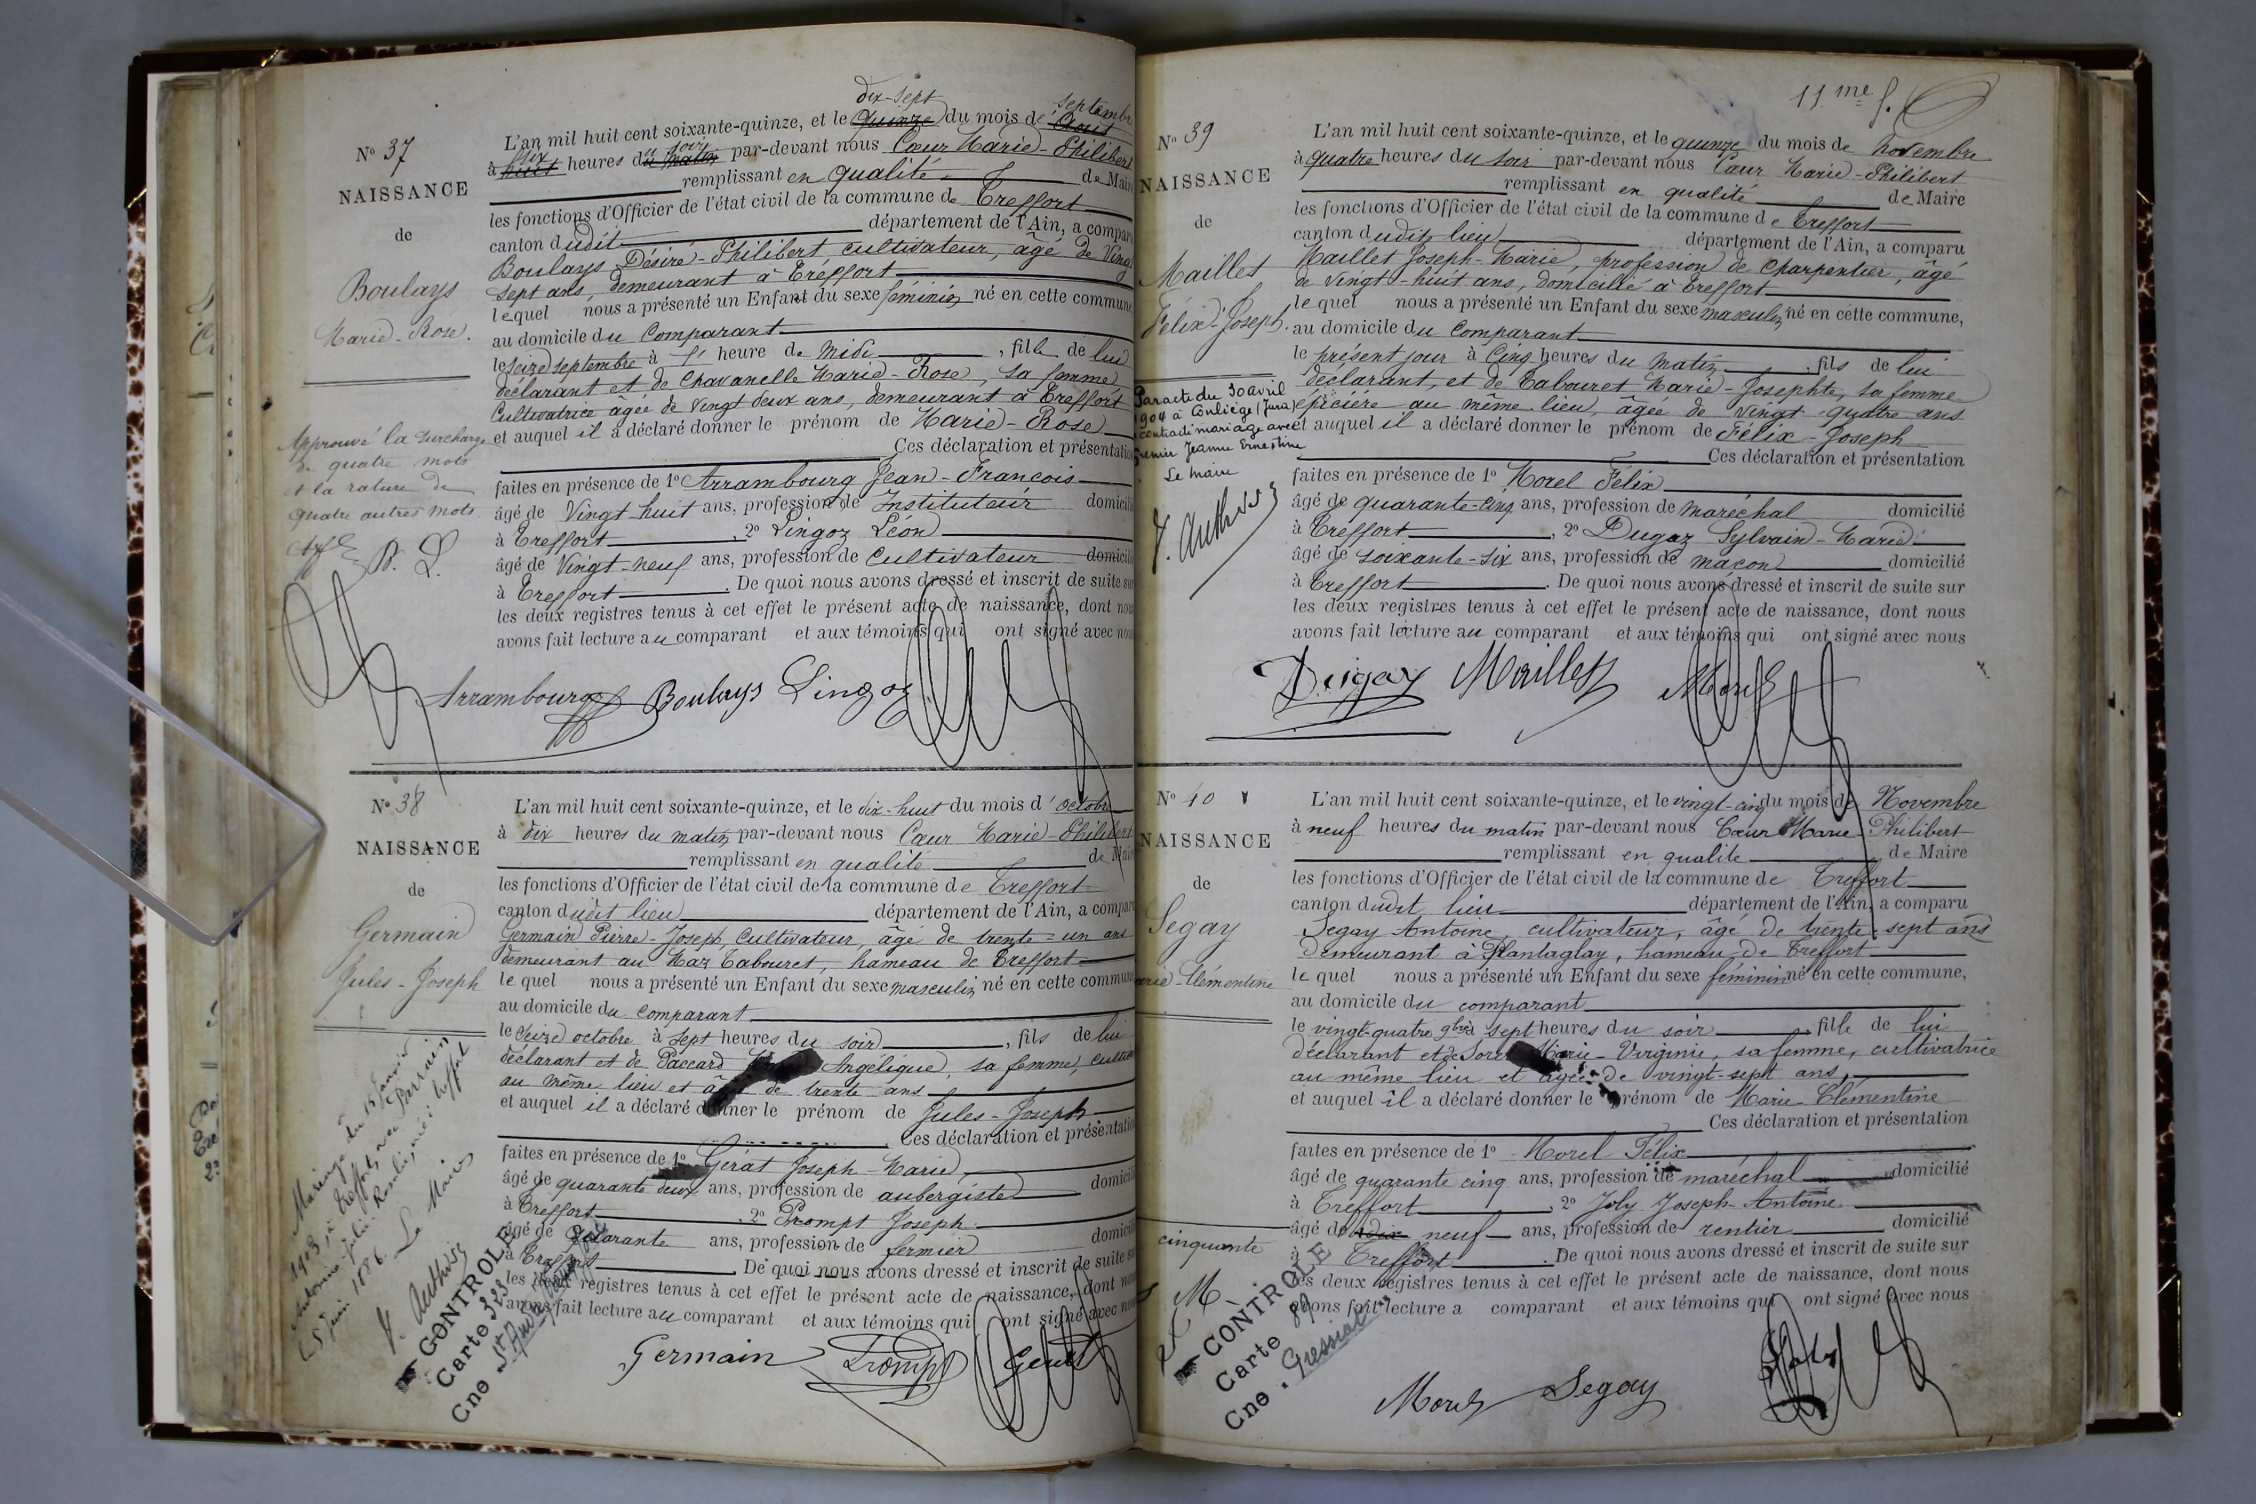 N° 37
NAISSANCE
de
Boulays
Marie-Rose.
Approuvé la surcharge
de quatre mots
et la rature de
quatre autres mots.
B. L.
dix-sept septembre
L'an mil huit cent soixante-quinze, et le quinze du mois de Aout
six soir
à huit heures du matin par-devant nous Cœur Marie-Philibert
remplissant en qualité de Maire
les fonctions d'Officier de l'état civil de la commune de Treffort
canton dudit département de l'Ain, a comparu
Boulays Désiré-Philibert cultivateur, âgé de Vingt
sept ans, demeurant à Treffort
lequel nous a présenté un Enfant du sexe féminin né en cette commune
au domicile du Comparant
le seize septembre à heure de midi , fille de lui
déclarant et de Chavanelle Marie-Rose, sa femme
Cultivatrice âgée de vingt deux ans, demeurant à Treffort
et auquel il a déclaré donner le prénom de Marie-Rose
Ces déclaration et présentation
faites en présence de 1° Arrambourg Jean-François
âgé de Vingt huit ans, profession de Instituteur domicilié
à Treffort , 2° Lingoz Léon
âgé de Vingt-neuf ans, profession de cultivateur domicilié
à Treffort . De quoi nous avons dressé et inscrit de suite sur
les deux registres tenus à cet effet le présent acte de naissance, dont nous
avons fait lecture au comparant et aux témoins qui ont signé avec nous
Arrambourg Boulays Lingoz
N° 38
NAISSANCE
de
Germain
Jules-Joseph
Mariage du 15 Janvier
1903, à Treffort, avec Perrain
Antonine Julie Rosalie, née à Treffort
5 Juin 1886. Le Maire
CONTROLE
Carte 323
Cne
L'an mil huit cent soixante-quinze, et le dix-huit du mois d'octobre
à dix heures du matin par-devant nous Cœur Marie-Philibert
remplissant en qualité de Maire
les fonctions d'Officier de l'état civil de la commune de Treffort
canton dudit lieu département de l'Ain, a comparu
Germain Pierre-Joseph, Cultivateur, âgé de trente-un ans
demeurant au Maz Tabouret, hameau de Treffort
le quel nous a présenté un Enfant du sexe masculin né en cette commune
au domicile du comparant
le Seize octobre à sept heures du soir , fils de lui
déclarant et de Paccard Angélique, sa femme,
au même lieu et de trente ans
et auquel il a déclaré donner le prénom de Jules-Joseph
Ces déclaration et présentation
faites en présence de 1° Gérat Joseph-Marie,
âgé de quarante deux ans, profession de aubergiste domicilié
à Treffort , 2° Prompt Joseph
âgé de quarante ans, profession de fermier domicilié
à Treffort . De quoi nous avons dressé et inscrit de suite sur
les deux registres tenus à cet effet le présent acte de naissance, dont nous
avons fait lecture au comparant et aux témoins qui ont signé avec nous
Germain Prompt Gerat
11me f.
N° 39
NAISSANCE
de
Maillet
Félix-Joseph.
Par acte du 30 avril
1904 à Conliège (Jura)
contracté mariage avec
Jeanne Ernestine
Le Maire
L'an mil huit cent soixante-quinze, et le quinze du mois de novembre
à quatre heures du soir par-devant nous Cœur Marie-Philibert
remplissant en qualité de Maire
les fonctions d'Officier de l'état civil de la commune de Treffort
canton dudit lieu département de l'Ain, a comparu
Maillet Joseph-Marie, profession de Charpentier, âgé
de Vingt-huit ans, domicilié à Treffort
le quel nous a présenté un Enfant du sexe masculin né en cette commune,
au domicile du Comparant
le présent jour à Cinq heures du matin , fils de lui
déclarant, et de Tabouret Marie-Josephte, sa femme
épicière au même lieu, âgée de vingt-quatre ans
et auquel il a déclaré donner le prénom de Félix-Joseph
Ces déclaration et présentation
faites en présence de 1° Morel Félix
âgé de quarante-cinq ans, profession de maréchal domicilié
à Treffort , 2° Dugaz Sylvain-Marie
âgé de soixante-six ans, profession de maçon domicilié
à Treffort . De quoi nous avons dressé et inscrit de suite sur
les deux registres tenus à cet effet le présent acte de naissance, dont nous
avons fait lecture au comparant et aux témoins qui ont signé avec nous
Dugaz Maillet Morel
N° 40
NAISSANCE
de
Segay
Marie-Clémentine
cinquante
M
CONTROLE
Carte 89
Cne . Gressiat
L'an mil huit cent soixante-quinze, et le vingt-cinq du mois de Novembre
à neuf heures du matin par-devant nous Cœur Marie-Philibert
remplissant en qualité de Maire
les fonctions d'Officier de l'état civil de la commune de Treffort
canton dudit lieu département de l'Ain, a comparu
Segay Antoine, cultivateur, âgé de trente-sept ans
demeurant à Plantaglay, hameau de Treffort
le quel nous a présenté un Enfant du sexe féminin né en cette commune,
au domicile du comparant
le vingt-quatre 9bre à sept heures du soir , fille de lui
déclarant et de Marie-Virginie, sa femme, cultivatrice
au même lieu et âgée de vingt-sept ans,
et auquel il a déclaré donner le prénom de Marie-Clémentine
Ces déclaration et présentation
faites en présence de 1° Morel Félix
âgé de quarante cinq ans, profession de maréchal domicilié
à Treffort , 2° Joly Joseph-Antoine
âgé de neuf ans, profession de rentier domicilié
à Treffort . De quoi nous avons dressé et inscrit de suite sur
les deux registres tenus à cet effet le présent acte de naissance, dont nous
avons fait lecture a comparant et aux témoins qui ont signé avec nous
Morel Segay Joly